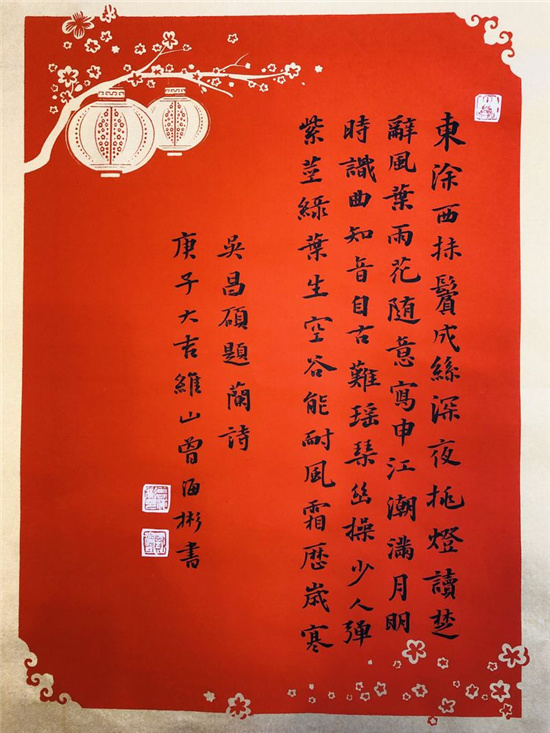 東涂西抹鬢成絲深夜挑燈讀楚
辭風葉雨花隨意寫申江潮滿月明
時識曲知音自古難瑶琴幽操少人彈
紫莖綠葉生空谷能耐風霜歷歲寒
吳昌碩題蘭詩
庚子大吉維山曾海彬書